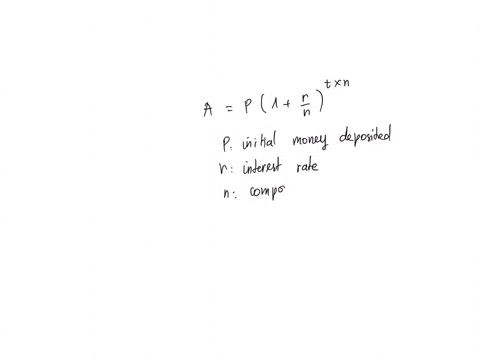 A = P (1 + r/n)^{t×n}
P: initial money deposited
r: interest rate
n: compo